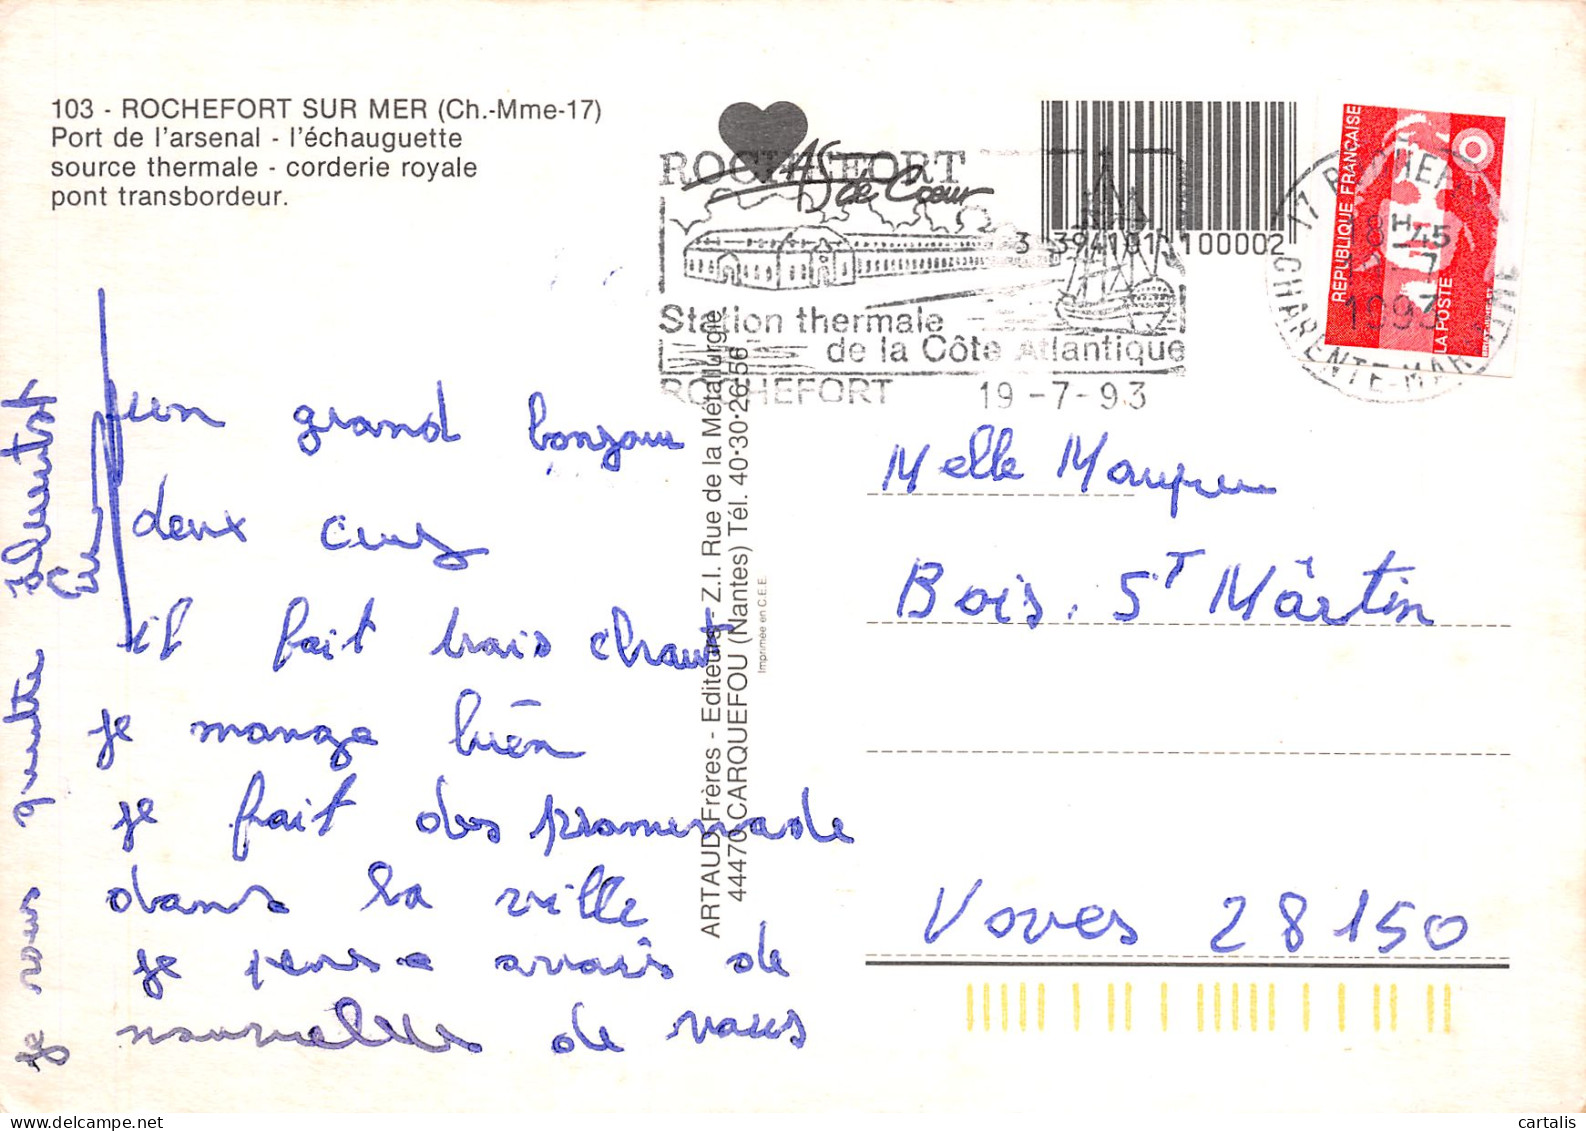 103 - ROCHEFORT SUR MER (Ch.-Mme-17)
Port de l'arsenal - l'échauguette
source thermale - corderie royale
pont transbordeur.
As de Cœur
ROCHEFORT
Station thermale
de la Côte Atlantique
ROCHEFORT 19-7-93
3 394101 100002
REPUBLIQUE FRANÇAISE
LA POSTE
17 ROCHEFORT
18H45
1993
CHARENTE-MARITIME
un grand bonjour
deux cury
il fait trais chaut
je mange bien
je fait des promenade
dans la ville
je pense avais de
nouvelles de vous
je vous quitte
ARTAUD Frères - Editeurs - Z.I. Rue de la Métallurgie
44470 CARQUEFOU (Nantes) Tél. 40·30·26·56
Imprimée en C.E.E.
Melle
Bois. ST Mârtin
Voves 28150
cartalis
delcampe.net